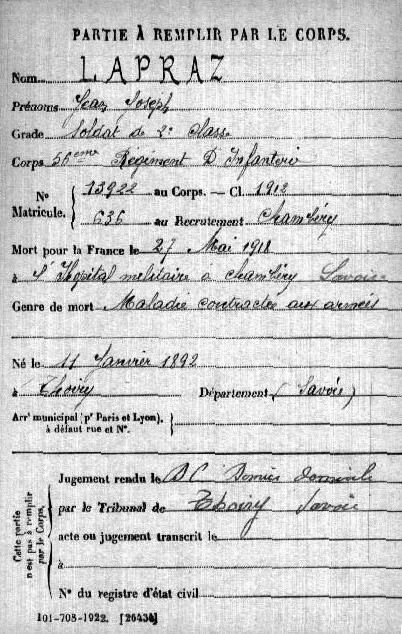 PARTIE À REMPLIR PAR LE CORPS.
Nom LAPRAZ
Prénoms Jean Joseph
Grade Soldat de 2e classe
Corps 56eme Régiment D'Infanterie
No 13922 au Corps. — Cl. 1912
Matricule. 636 au Recrutement Chambéry
Mort pour la France le 27 Mai 1918
à l'Hopital militaire à Chambéry Savoie
Genre de mort Maladie contractée aux armées
Né le 11 Janvier 1892
à Thoiry Département (Savoie)
Arrt municipal (pr Paris et Lyon),
à défaut rue et No.
Cette partie
n'est pas à remplir
par le Corps.
Jugement rendu le
par le Tribunal de Thoiry Savoie
acte ou jugement transcrit le
No du registre d'état civil
101-708-1922. [26434]